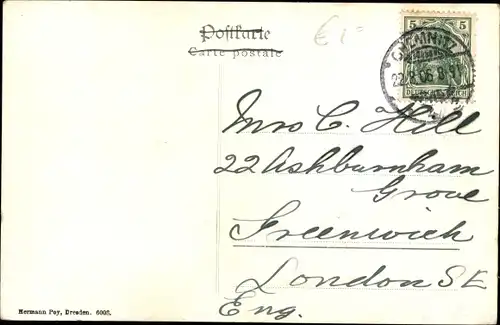 Postkarte
Carte postale
€ 1-
5 5
CHEMNITZ
DEUTSCHES REICH
Mrs C. Hill
22 Ashburnham
Grove
Greenwich
London SE
Eng.
Hermann Poy, Dresden. 6005.